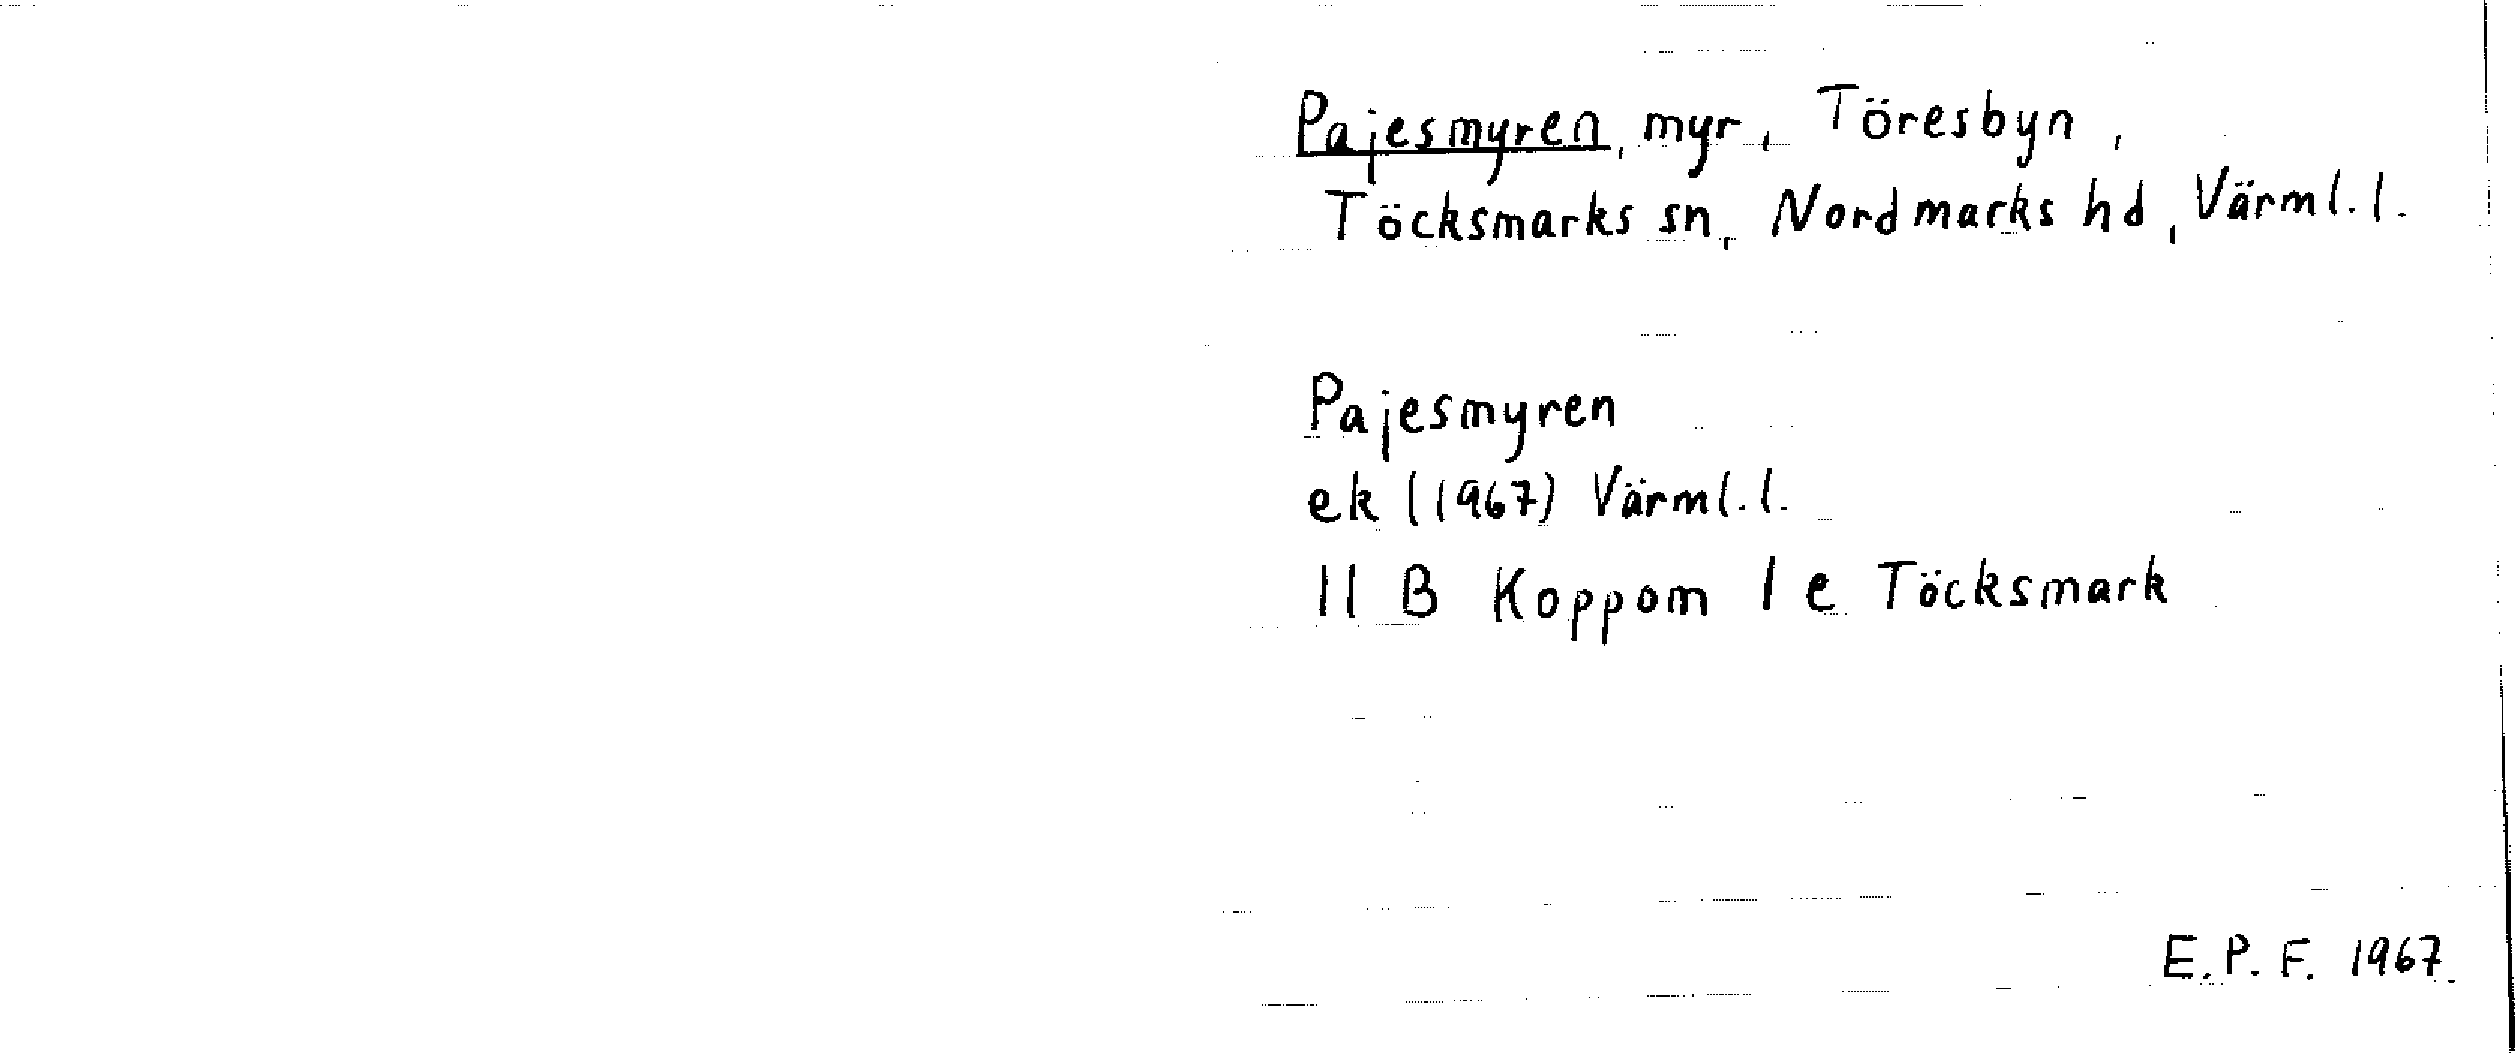 Pajesmyren, myr, Töresbyn,
Töcksmarks sn, Nordmarks hd, Värml.l.
Pajesmyren
ek (1967) Värml.l.
11 B Koppom 1 e Töcksmark
E.P.F. 1967.